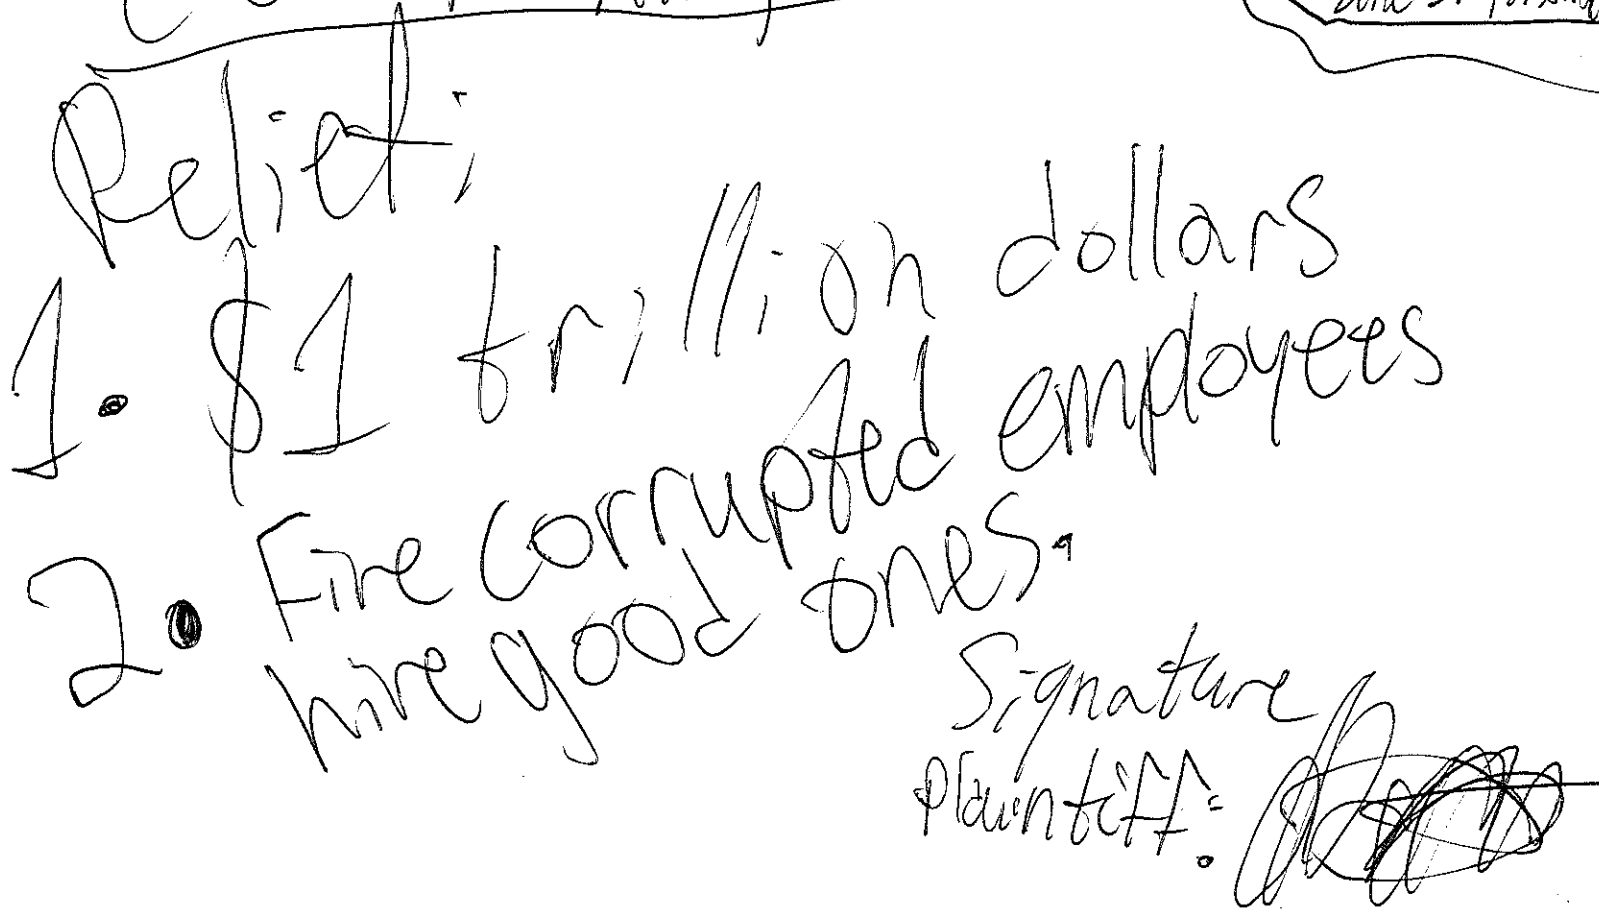 Relief:
1. $1 trillion dollars
2. Fire corrupted employees
hire good ones.
Signature
Plaintiff: